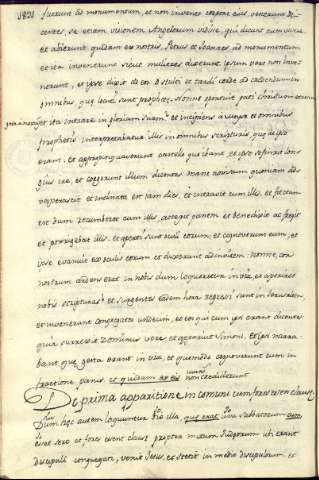 1821 fuerunt ad monumentum, et non invento corpore eius venerunt di-
centes, se etiam visionem Angelorum vidisse, qui dicunt eum vivere.
et abierunt quidam ex nostris, ad monumentum
et ita invenerunt sicut mulieres dixerunt. ipsum vero non inve-
nerunt, et ipse dixit ad eos. O stulti et tardi corde ad credendum in
omnibus quę locuti sunt prophetę, Nonne oportuit pati Christum
ita intrare in gloriam suam. et incipiens a Moyse et omnibus
prophetis interpretabatur illis in omnibus scripturis quę de ipso
erant. et appropinquaverunt castello quo ibant. et ipse se finxit lon-
gius ire, et coegerunt illum dicentes. mane nobiscum quoniam ad-
vesperascit et inclinata est iam dies. et intravit cum illis. et factum
est dum recumberet cum illis, accepit panem et benedixit ac fregit
et porrigebat illis. et aperti sunt oculi eorum, et cognoverunt eum, et
ipse evanuit ex oculis eorum et dixerunt ad invicem: Nonne cor
nostrum ardens erat in nobis dum loqueretur in via, et aperiret
nobis scripturas. et surgentes eadem hora regressi sunt in
et invenerunt congregatos undecim, et eos qui cum ipsis erant dicentes
quia surrexit Dominus vere et apparuit Simoni. et ipsi narra-
bant quę gesta erant in via, et quomodo cognoverunt eum in
fractione panis et quidam ex eis non crediderunt
De prima apparitione in communi cum fores essent clausę
Dum hęc autem loquuntur die illa quę erat una sabbatorum cum
esset sero et fores essent clausę propter metum Iudęorum ubi erant
discipuli congregati, venit Iesus, et stetit in medio discipulorum et